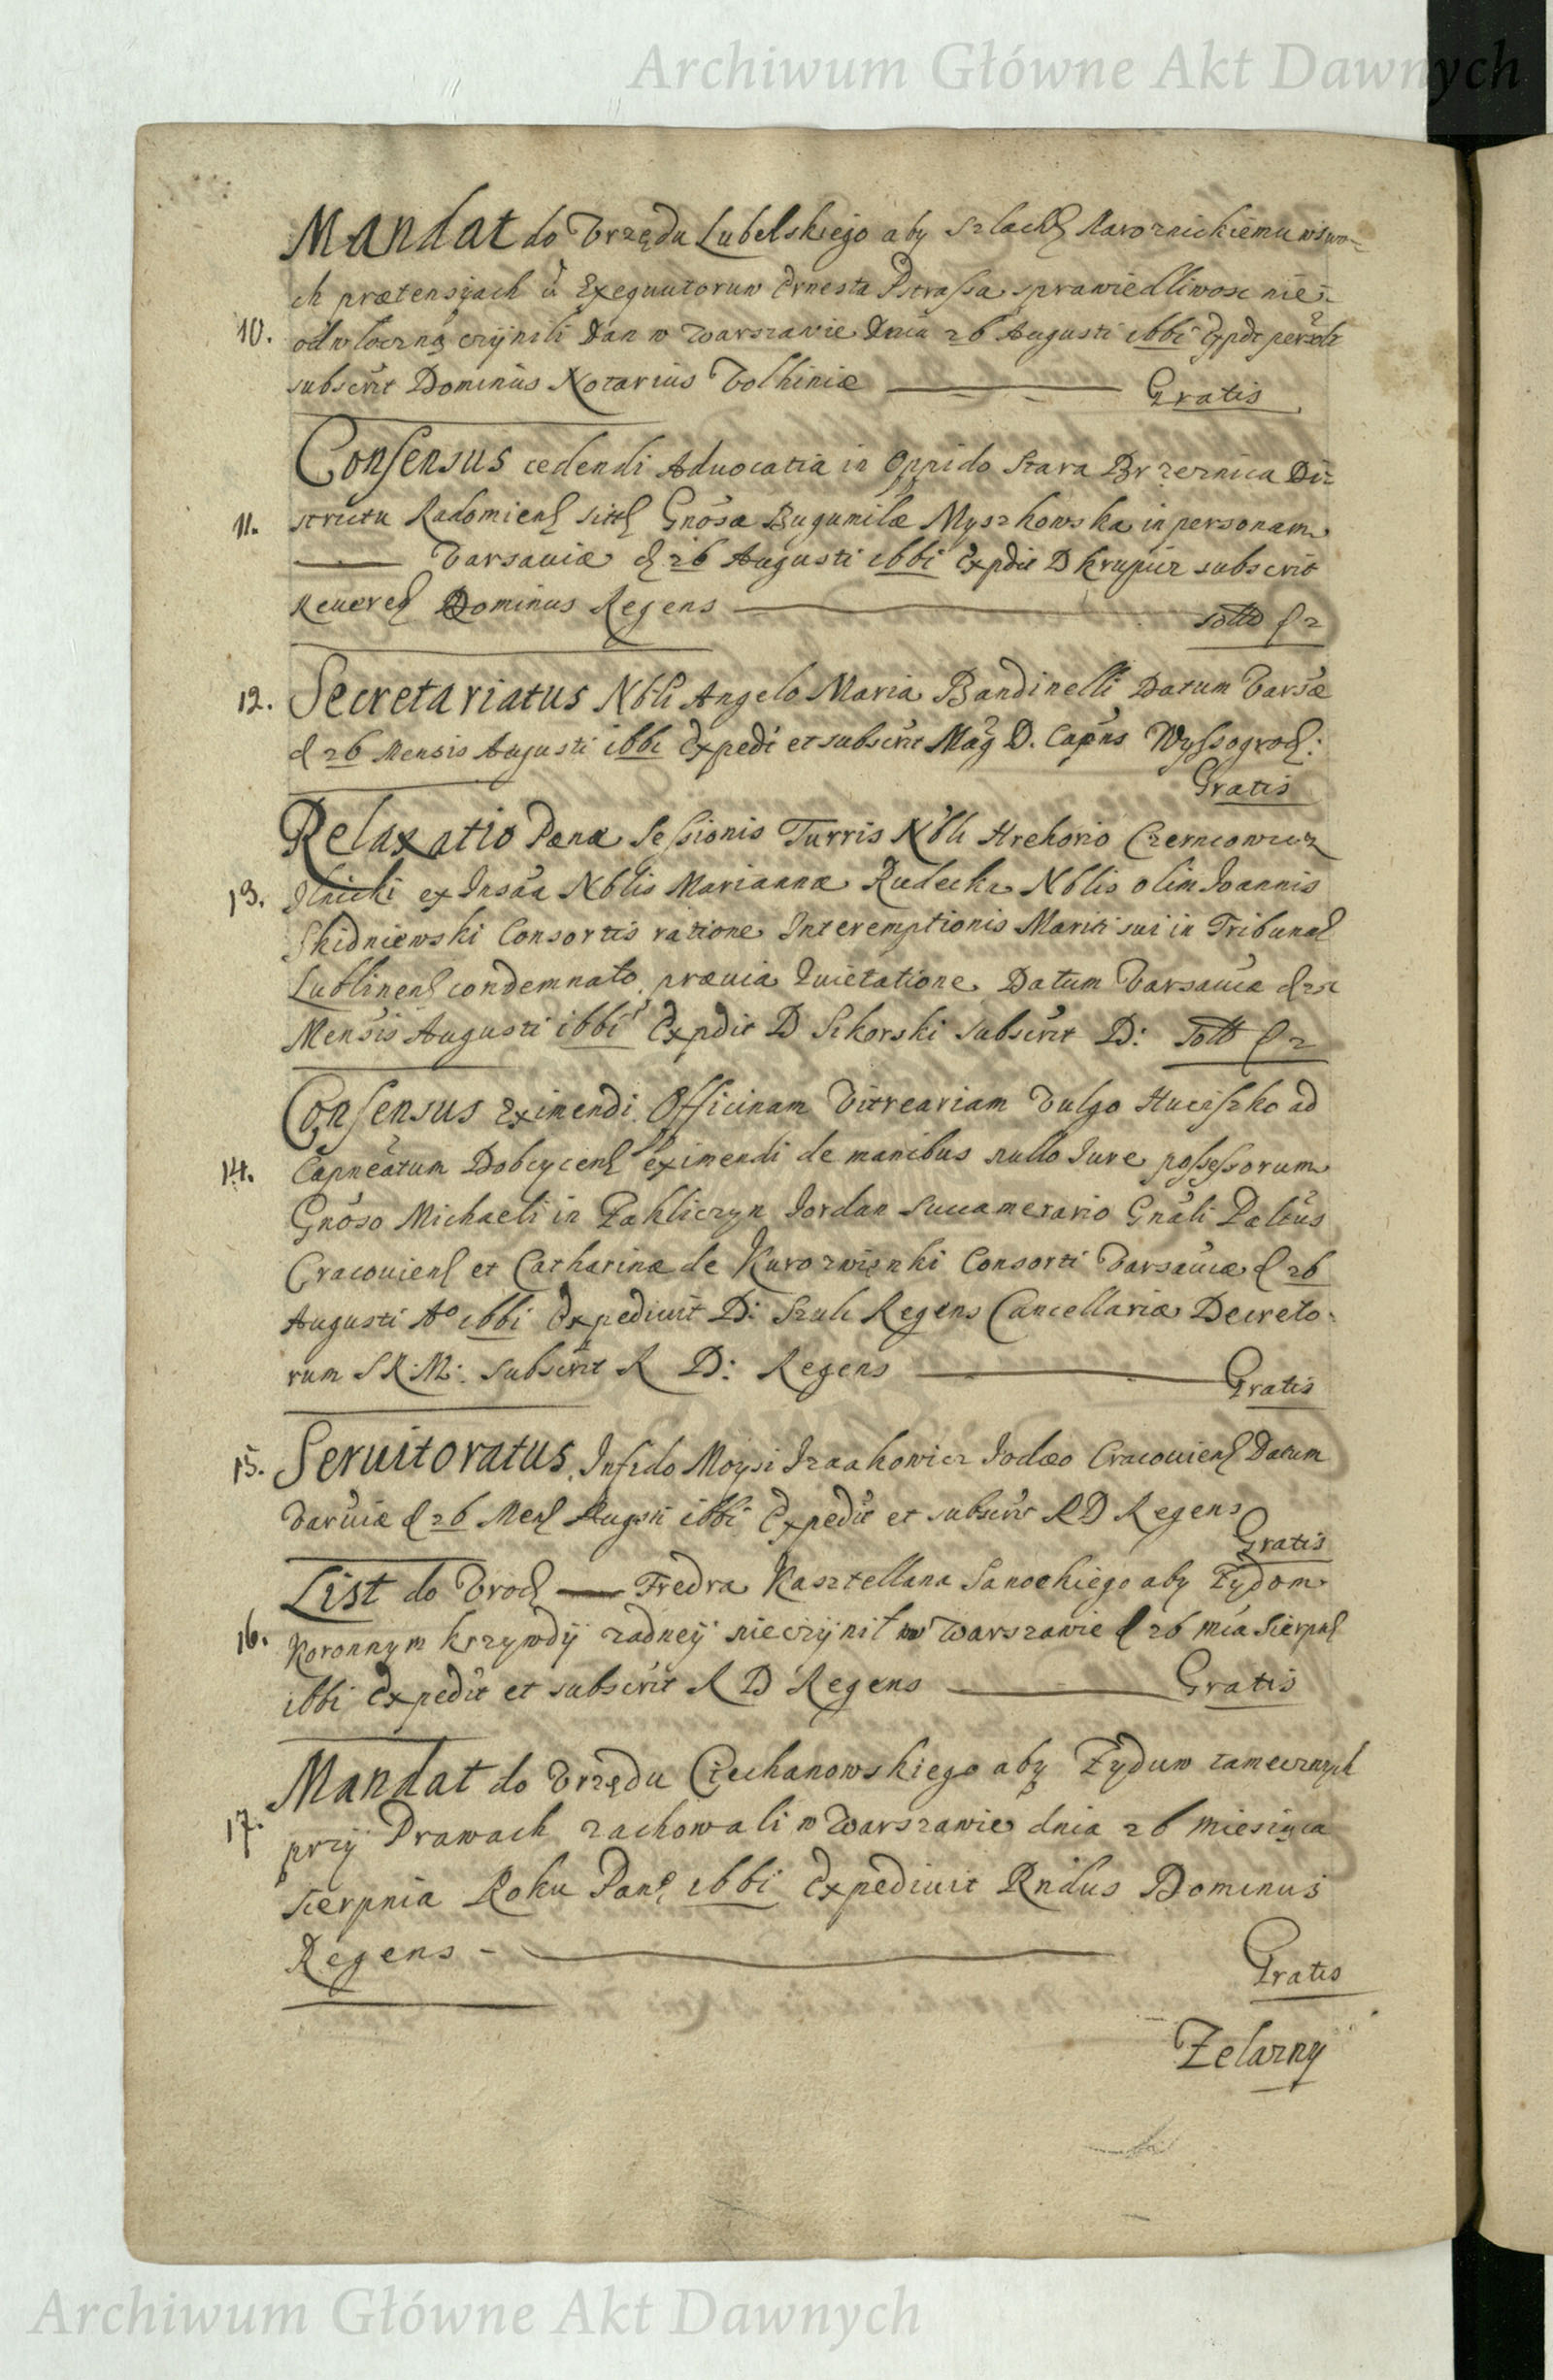 Archiwum Główne Akt Dawnych
Mandat do Vrzędu Lubelskiego aby Szlach
ch prætensijach u Exequutorum Ernesta sprawiedliwosc nie-
10. odwłoczną czijnili Dan w Warszawie Dnia 26 Augusti 1661
subscrit Dominus Notarius Volhiniæ Gratis
Consensus cedendi Aduocatia in Oppido Stara Brzeznica Di-
11. strictu Radomien Gnosæ Bugumilæ Myszkowska in personam
Varsauiæ d 26 Augusti 1661 Expdit D Krupier subscrit
Reuered Dominus Regens sotto f 2
12. Secretariatus Nbli Angelo Maria Bandinelli Datum Varsæ
d 26 Mensis Augusti 1661 Expedi et subscrit Mag D. Capns Wyssogrod:
Gratis
Relaxatio Pænæ Sessionis Turris Nbli Hrehorio
13. Ilnicki ex Insta Nblis Mariannæ Rudecka Nblis olim Ioannis
Skidniewski Consortis ratione Interemptionis Mariti sui in Tribunal
Lublinen condemnato, præuia Quietatione Datum Varsauiæ
Mensis Augusti 1661 Expdit D Sikorski subscrit D: Sotto f 2
Consensus eximendi Officinam Vitreariam Vulgo Huciszko ad
14. Capneatum Dobcycen eximendi de manibus nullo Iure possessorum
Gnoso Michaeli in Zakliczyn Iordan Succamerario Gnali Paltus
Cracouien et Catharinæ de Kurozwięnki Consorti Varsauiæ d 26
Augusti Aº 1661 Expediuit D: Szulc Regens Cancellariæ Decreto-
rum S R: M: subscrit R D: Regens Gratis
15. Seruitoratus Infido Moysi Izaakowicz Iudæo Cracouien Datum
Varuiæ d 26 Men Augsti 1661 Expedit et subscrit R D Regens
Gratis
List do Vrod Fredra Kasztellana Sanockiego aby Zydom
16. Koronnym krzywdij zadneij nieczijnił w Warszawie d 26 mca Sierpn
1661 Expedit et subscrit R D Regens Gratis
Mandat do Vrzędu Ciechanowskiego aby Zydum tamecznych
17. przij Prawach zachowali w Warszawie dnia 26 miesiąca
sierpnia Roku Pan 1661 Expediuit Rndus Dominus
Regens - Gratis
Zelazny
Archiwum Główne Akt Dawnych